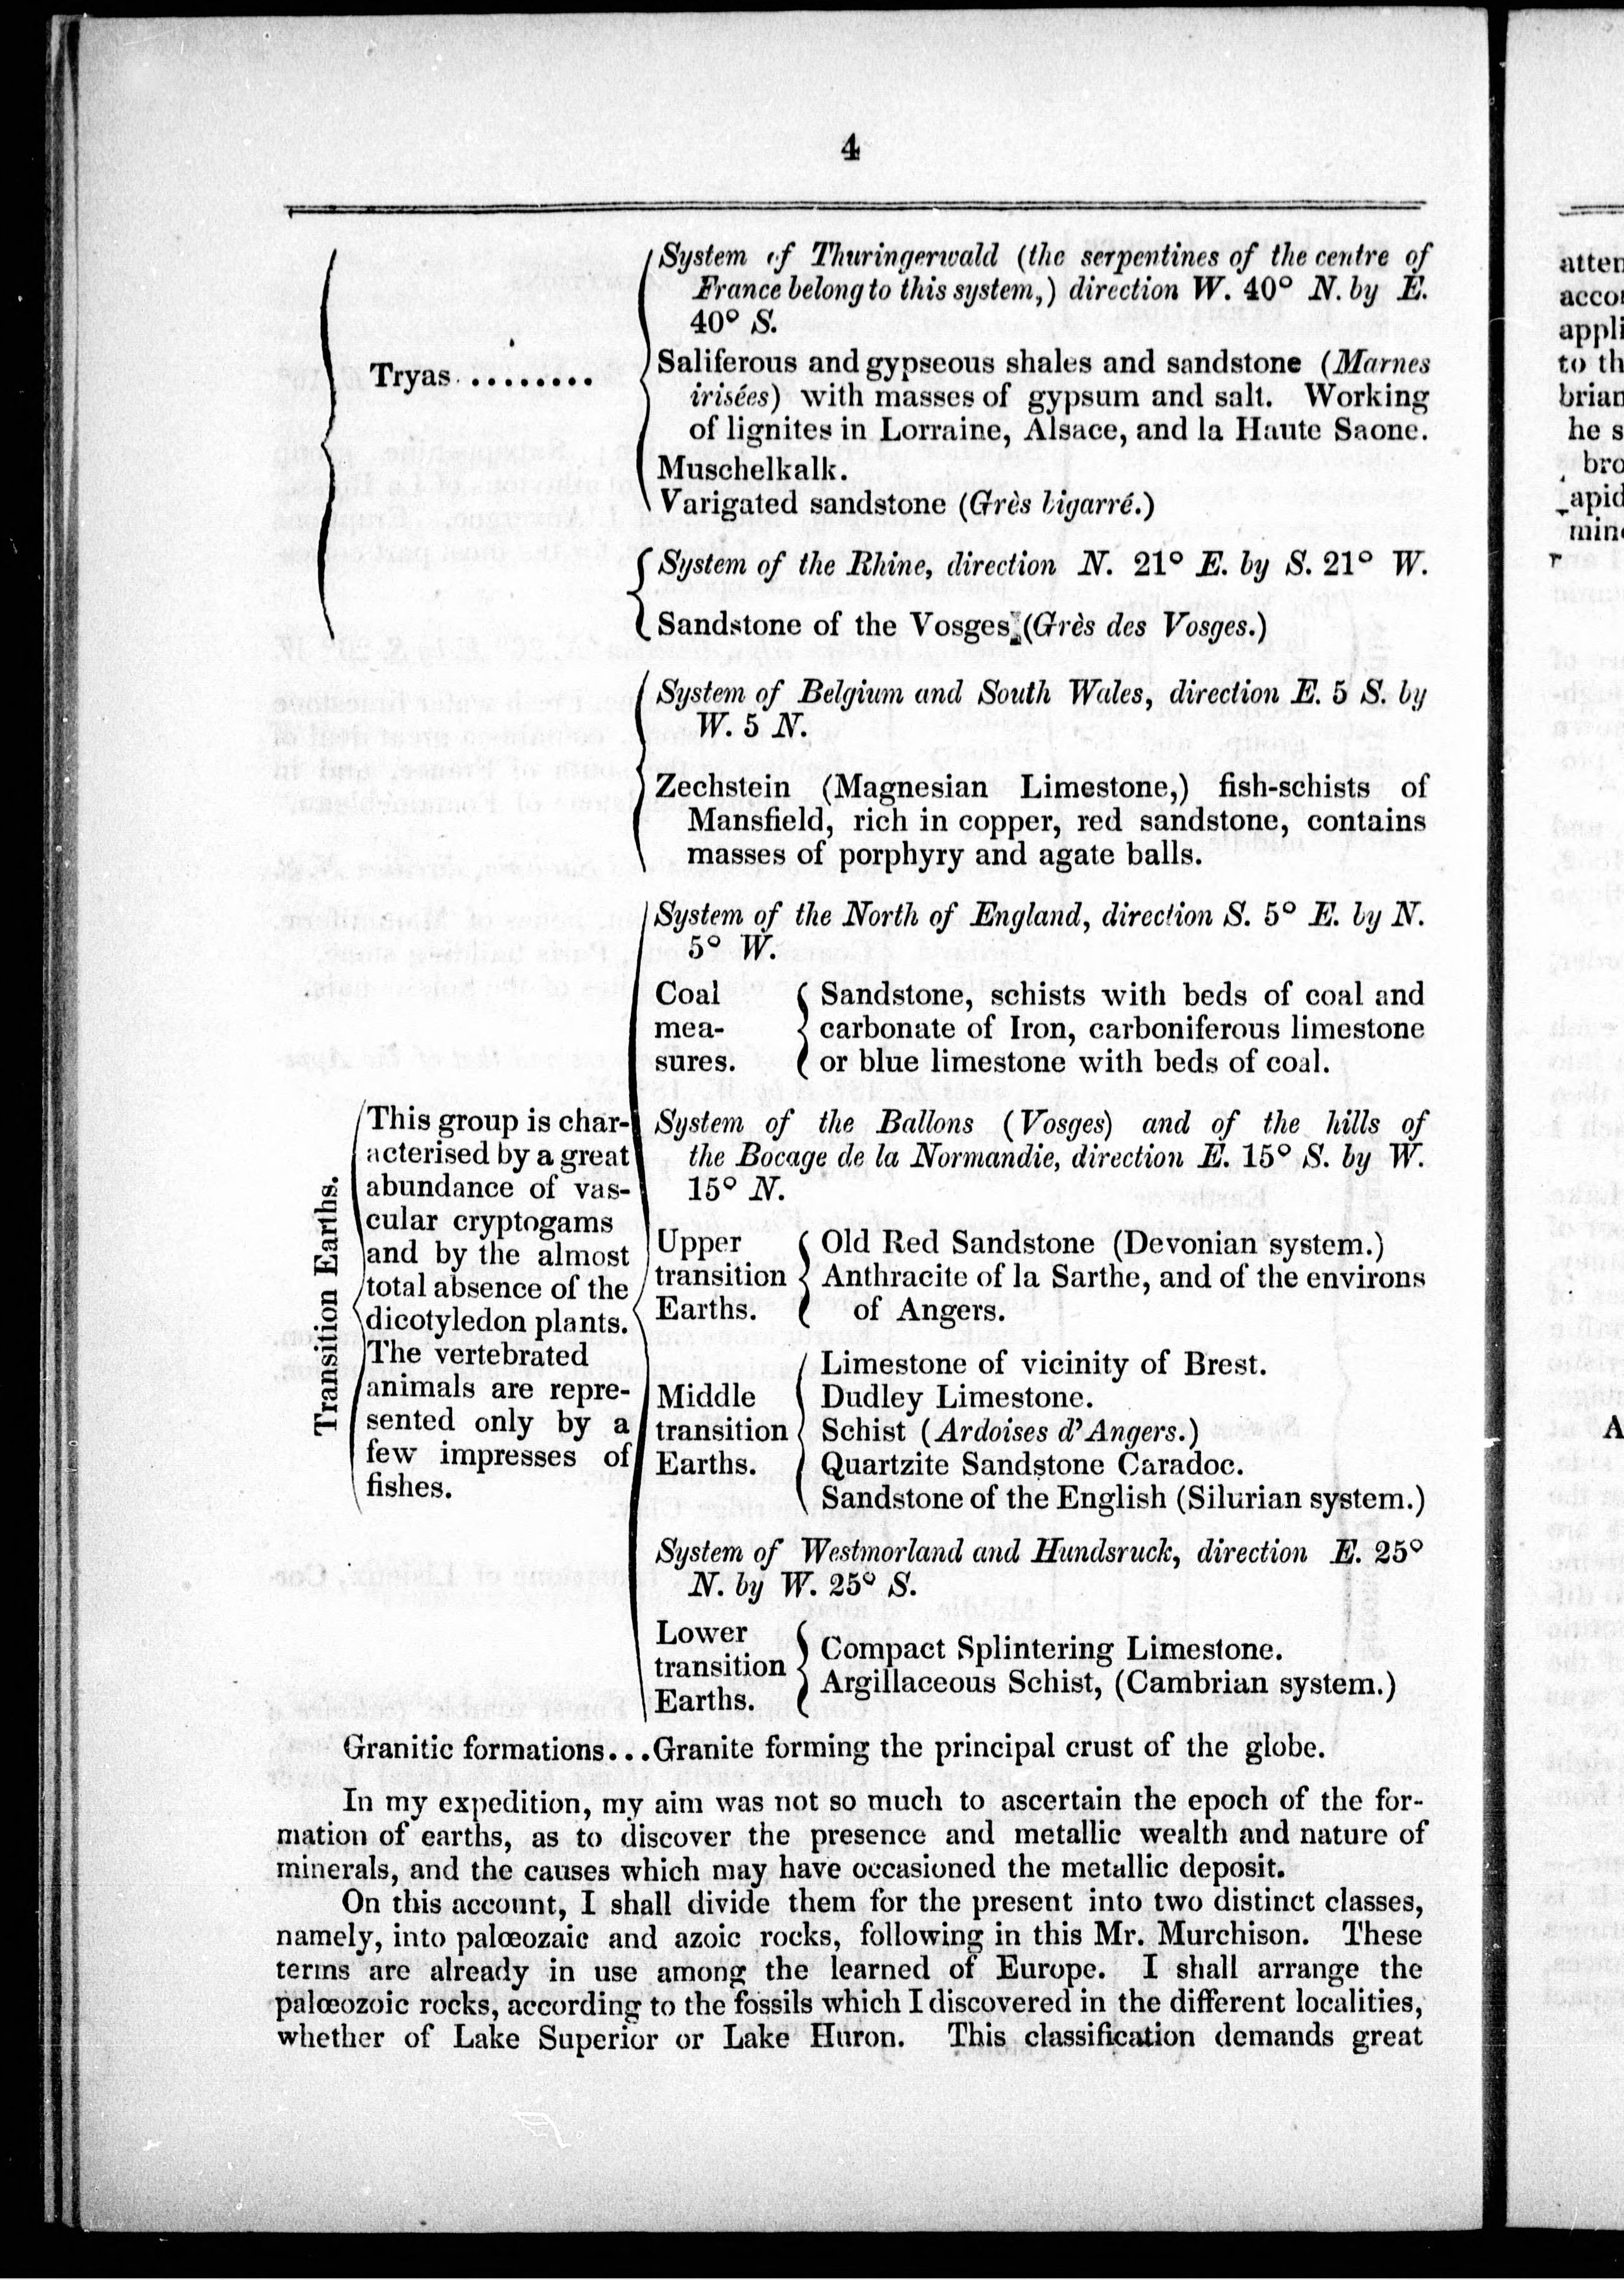 4
System of Thuringerwald (the serpentines of the centre of
France belong to this system,) direction W. 40° N. by E.
40° S.
Tryas ........
Saliferous and gypseous shales and sandstone (Marnes
irisées) with masses of gypsum and salt. Working
of lignites in Lorraine, Alsace, and la Haute Saone.
Muschelkalk.
Varigated sandstone (Grès bigarré.)
System of the Rhine, direction N. 21° E. by S. 21° W.
Sandstone of the Vosges (Grès des Vosges.)
System of Belgium and South Wales, direction E. 5 S. by
W. 5 N.
Zechstein (Magnesian Limestone,) fish-schists of
Mansfield, rich in copper, red sandstone, contains
masses of porphyry and agate balls.
Transition Earths.
This group is char-
acterised by a great
abundance of vas-
cular cryptogams
and by the almost
total absence of the
dicotyledon plants.
The vertebrated
animals are repre-
sented only by a
few impresses of
fishes.
System of the North of England, direction S. 5° E. by N.
5° W.
Coal
mea-
sures.
Sandstone, schists with beds of coal and
carbonate of Iron, carboniferous limestone
or blue limestone with beds of coal.
System of the Ballons (Vosges) and of the hills of
the Bocage de la Normandie, direction E. 15° S. by W.
15° N.
Upper
transition
Earths.
Old Red Sandstone (Devonian system.)
Anthracite of la Sarthe, and of the environs
of Angers.
Middle
transition
Earths.
Limestone of vicinity of Brest.
Dudley Limestone.
Schist (Ardoises d'Angers.)
Quartzite Sandstone Caradoc.
Sandstone of the English (Silurian system.)
System of Westmorland and Hundsruck, direction E. 25°
N. by W. 25° S.
Lower
transition
Earths.
Compact Splintering Limestone.
Argillaceous Schist, (Cambrian system.)
Granitic formations...Granite forming the principal crust of the globe.
In my expedition, my aim was not so much to ascertain the epoch of the for-
mation of earths, as to discover the presence and metallic wealth and nature of
minerals, and the causes which may have occasioned the metallic deposit.
On this account, I shall divide them for the present into two distinct classes,
namely, into palœozaic and azoic rocks, following in this Mr. Murchison. These
terms are already in use among the learned of Europe. I shall arrange the
palœozoic rocks, according to the fossils which I discovered in the different localities,
whether of Lake Superior or Lake Huron. This classification demands great
atten
accor
appli
to th
brian
he s
bro
apid
mine
r
A